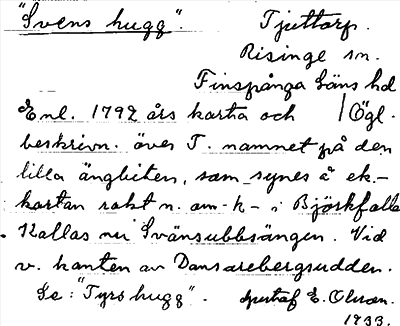 "Svens hugg". Tjuttorp.
Risinge sn.
Finspånga läns hd
Enl. 1792 års karta och / Ögl.
beskrivn. över T. namnet på den
lilla ängbiten, som synes å ek.-
kartan rakt n. om -k- i Björkfalla
Kallas nu Svänsubbsängen. Vid
v. kanten av Dansarebergsudden.
Se: "Tyrs hugg". Gustaf E. Olsson.
1933.